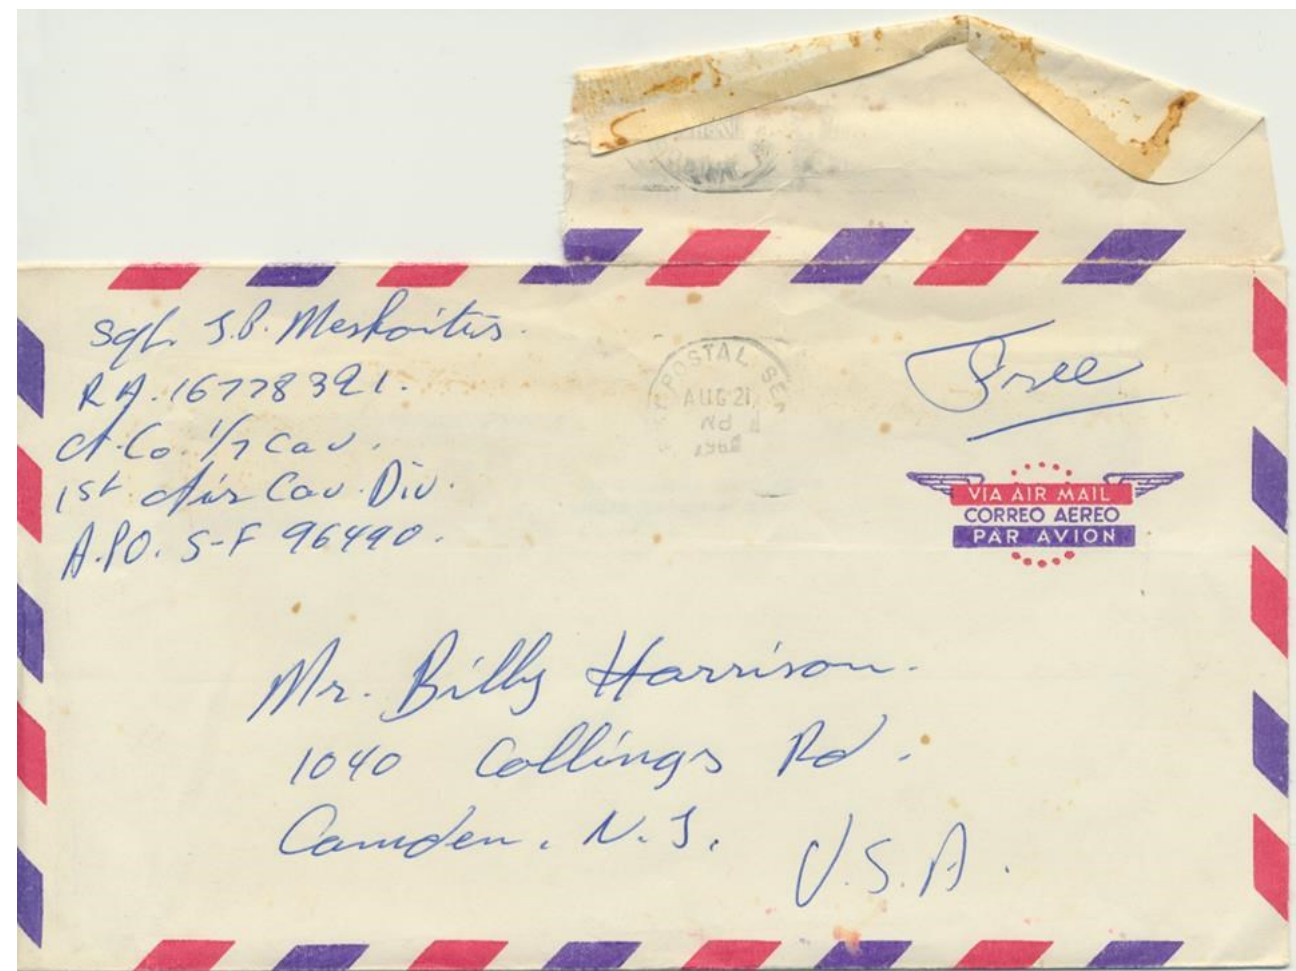 Sgt. J.P. Meskaitis.
RA. 16778391.
A-Co. 1/7 Cav.
1st Air Cav. Div.
A.P.O. S-F 96490.
POSTAL SE
AUG 21
Free
VIA AIR MAIL
CORREO AEREO
PAR AVION
Mr. Billy Harrison.
1040 Collings Rd.
Camden. N.J.
U.S.A.